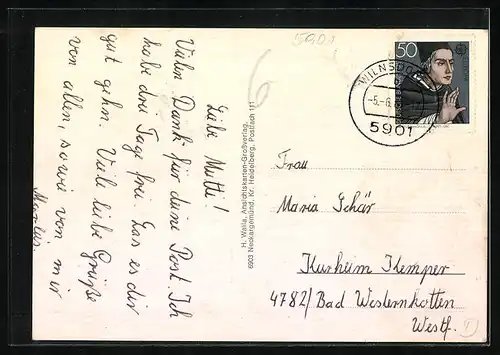 5901
6
Liebe Mutti!
Vielen Dank für deine Post. Ich
habe drei Tage frei. Las es dir
gut gehn. Viele liebe Grüße
von allen, sowie von mir
H. Walla, Ansichtskarten-Großverlag,
6903 Neckargemünd, Kr. Heidelberg, Postfach 111
50
WILNSDORF
-5.-6.
5901
Frau
Maria Schär
Kurheim Kemper
4782/ Bad Westernkotten
Westf.